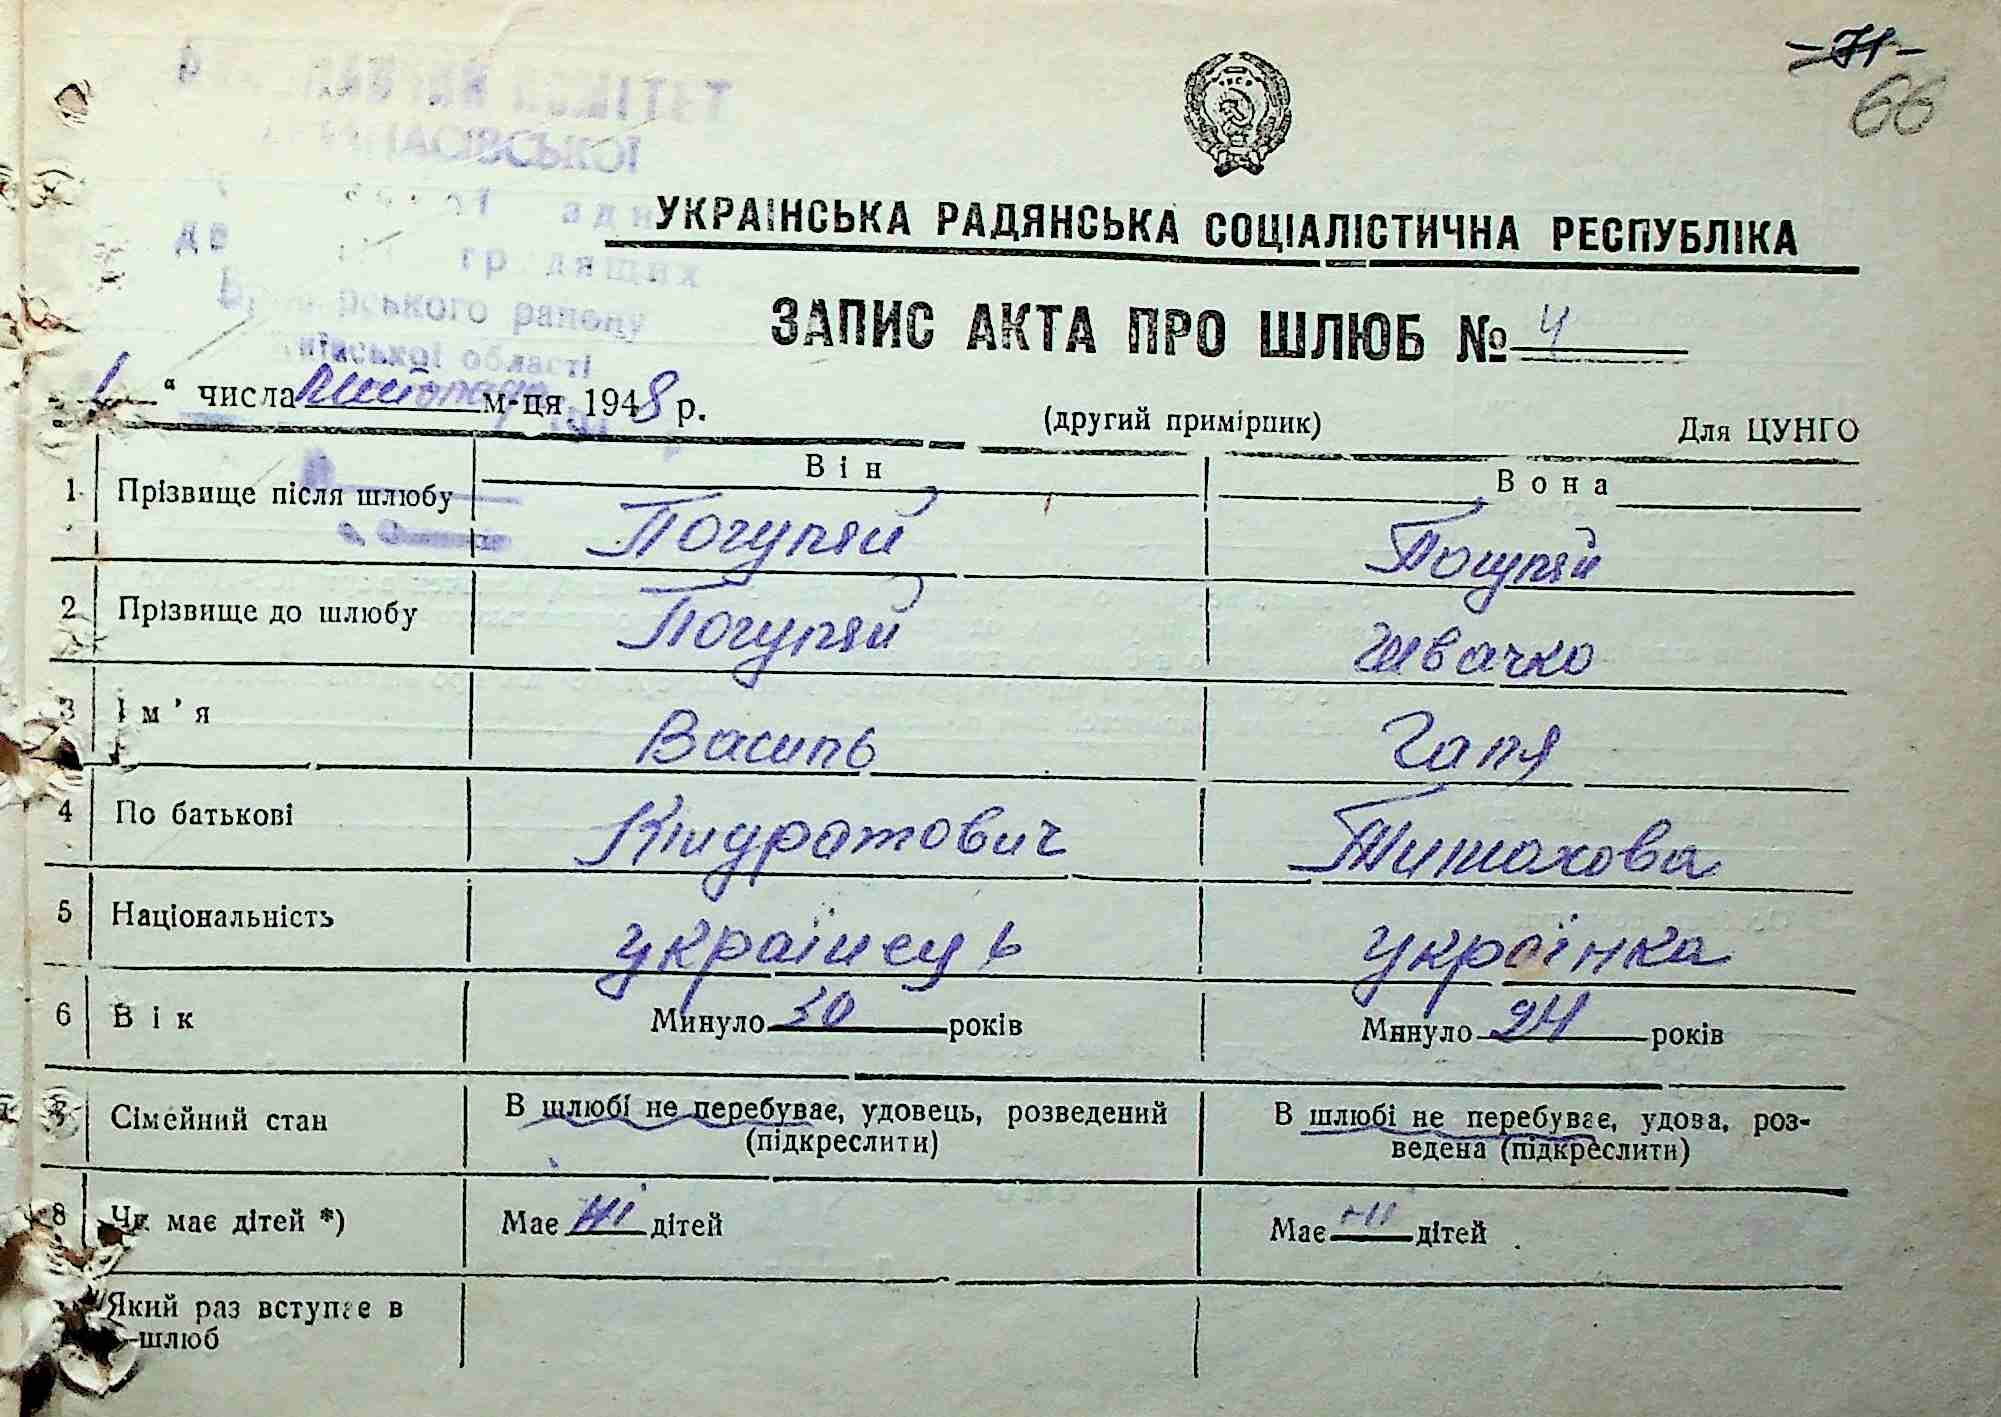 -71-
66
УКРАЇНСЬКА РАДЯНСЬКА СОЦІАЛІСТИЧНА РЕСПУБЛІКА
ЗАПИС АКТА ПРО ШЛЮБ № 4
району
області
“ числа листопада м-ця 1948 р.
(другий примірник)
Для ЦУНГО
Він
Вона
1 Прізвище після шлюбу Погуляй Погуляй
2 Прізвище до шлюбу Погуляй Швачко
3 Ім'я Василь Галя
4 По батькові Кіндратович
5 Національність українець українка
6 Вік Минуло 30 років Минуло 24 років
7 Сімейний стан В шлюбі не перебуває, удовець, розведений (підкреслити) В шлюбі не перебуває, удова, роз-
ведена (підкреслити)
8 Чи має дітей *) Має ні дітей Має ні дітей
Який раз вступає в
шлюб